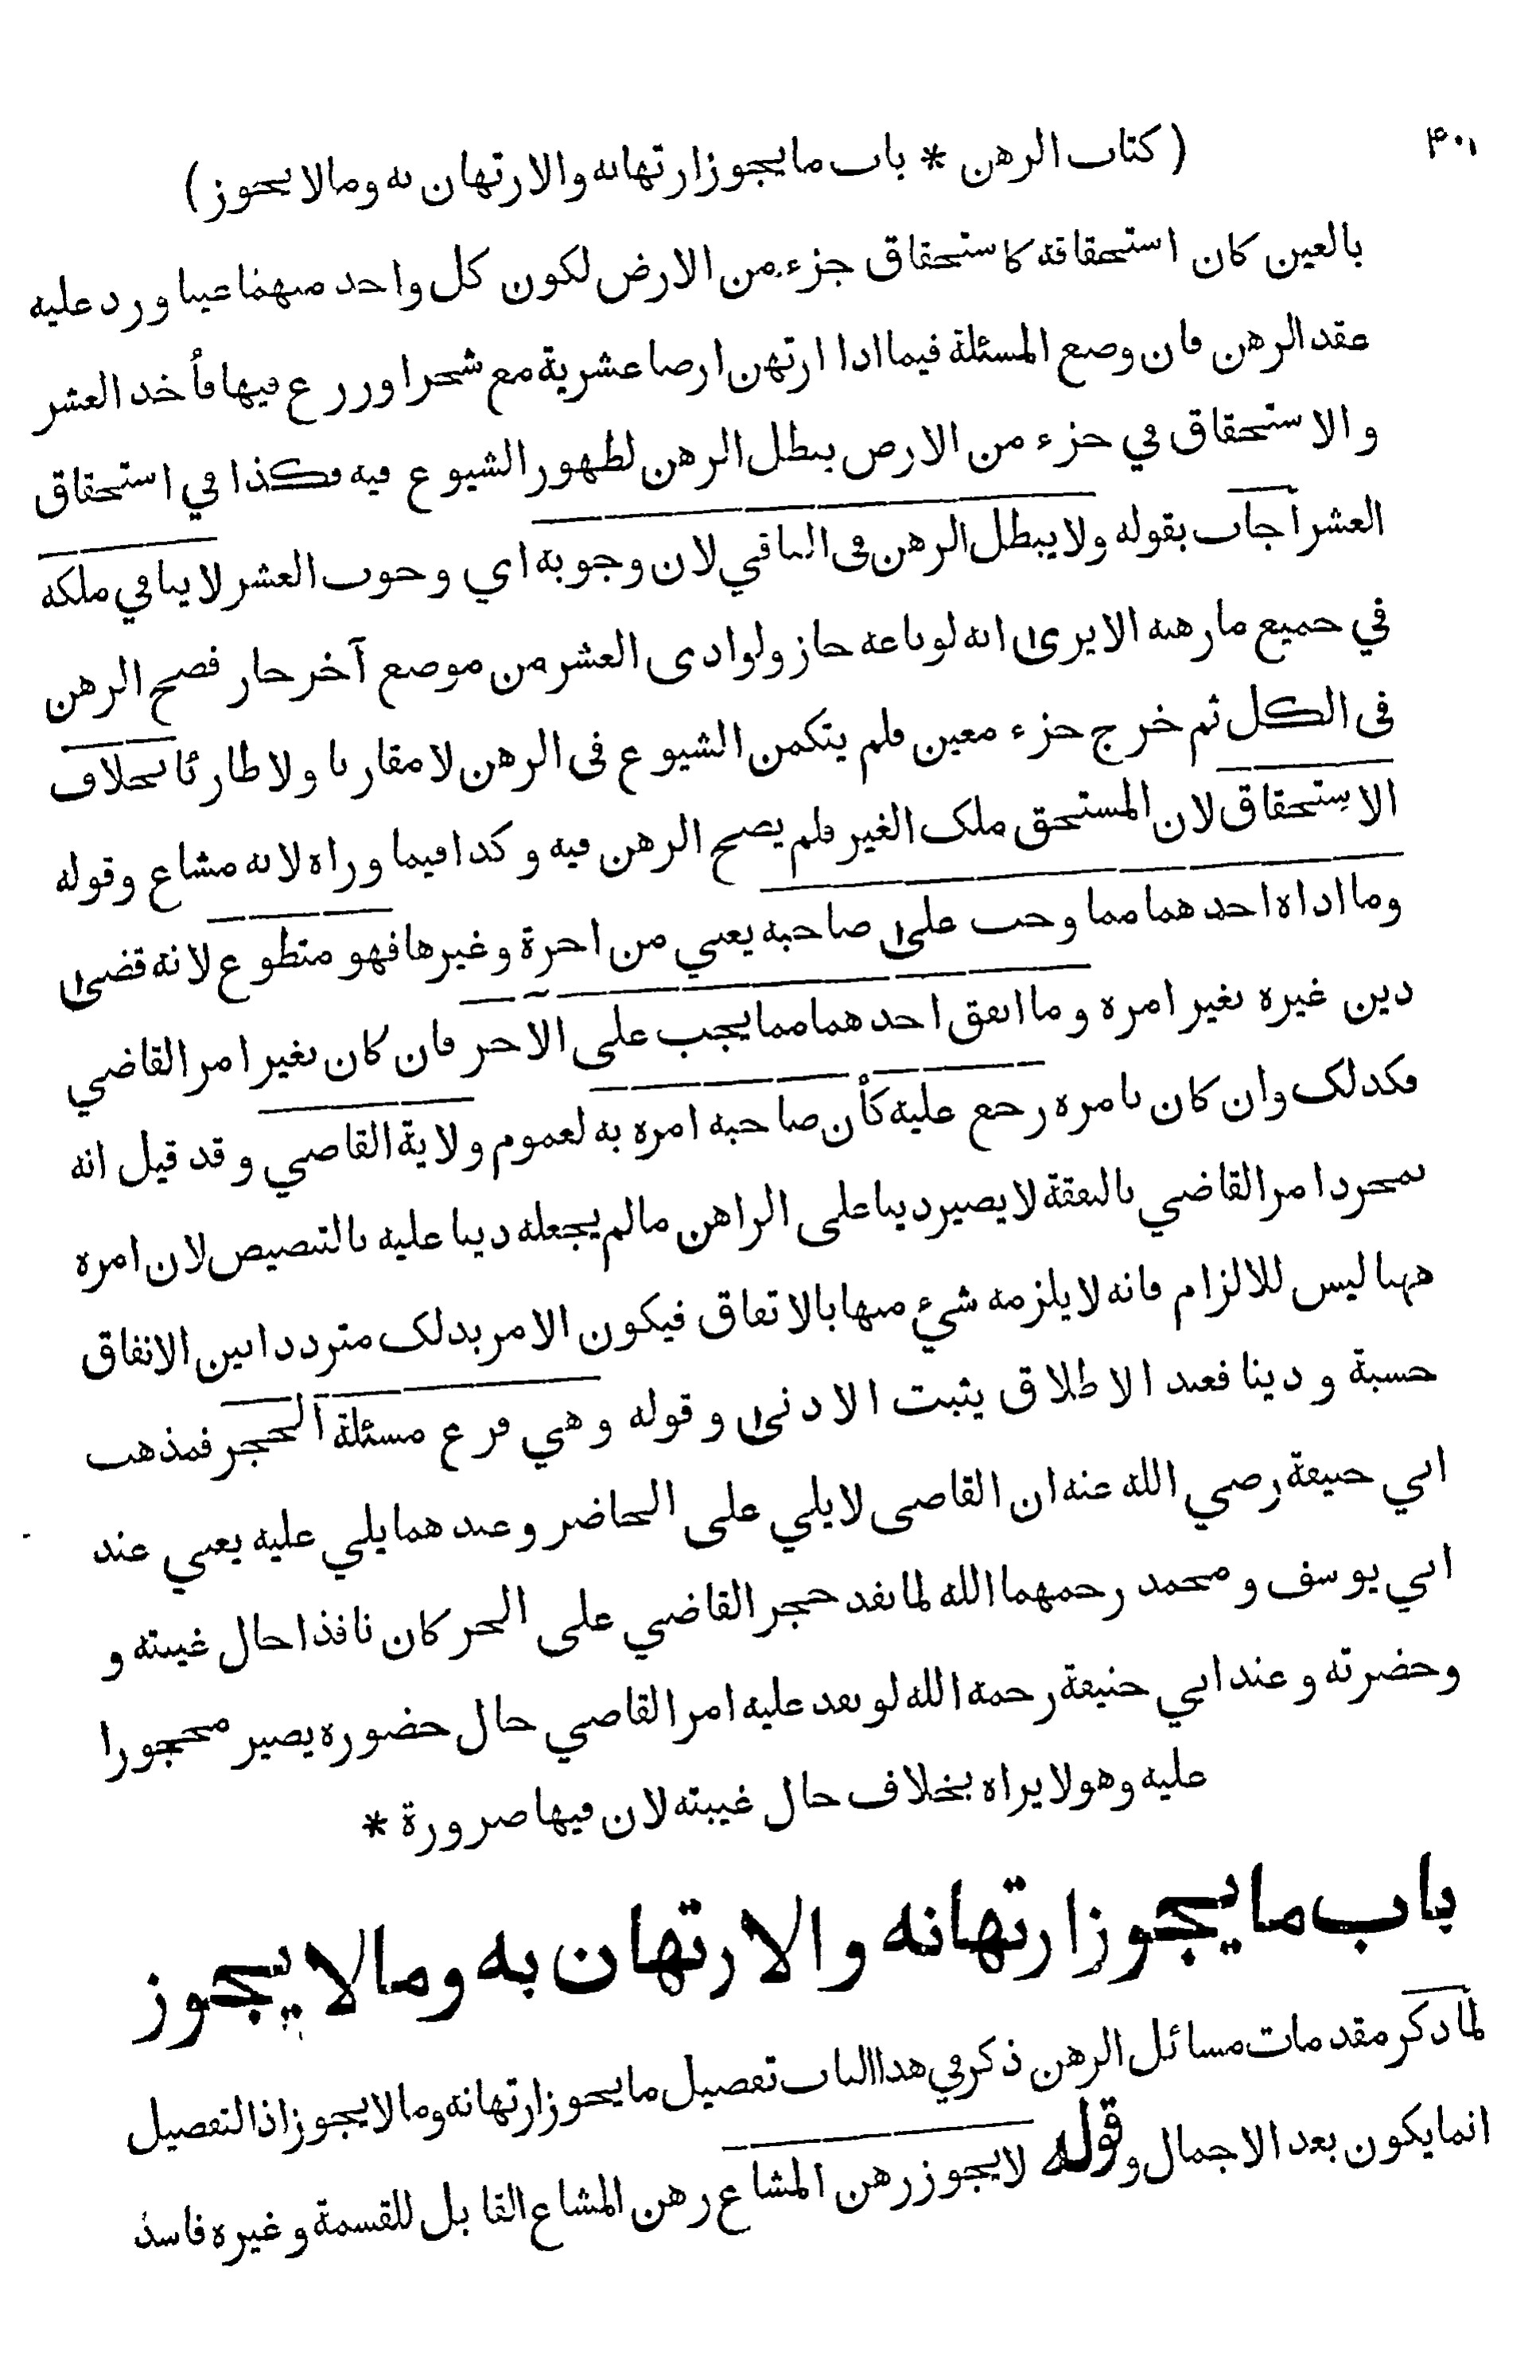 ( كتاب الرهن * باب ما يجوز ارتهانه والارتهان به وما لا يجوز )
بالعين كان استحقاقه كاستحقاق جزء من الارض لكون كل واحد منهما عينا ورد عليه
عقد الرهن فان وضع المسئلة فيما اذا ارتهن ارضا عشرية مع شجر اوزرع فيها فأخذ العشر
والاستحقاق في جزء من الارض يبطل الرهن لظهور الشيوع فيه فكذا في استحقاق
العشر أجاب بقوله ولا يبطل الرهن في الباقي لان وجوبه اي وجوب العشر لا ينافي ملكه
في جميع ما رهنه الا يرى انه لو باعه جاز ولو ادى العشر من موضع آخر جاز فصح الرهن
في الكل ثم خرج جزء معين فلم يتكمن الشيوع في الرهن لا مقارنا ولا طارئا بخلاف
الاستحقاق لان المستحق ملك الغير فلم يصح الرهن فيه وكذا فيما وراه لانه مشاع وقوله
وما اداه احدهما مما وجب على صاحبه يعني من اجرة وغيرها فهو متطوع لانه قضى
دين غيره بغير امره وما انفق احدهما مما يجب على الآخر فان كان بغير امر القاضي
فكذلك وان كان بامره رجع عليه كأن صاحبه امره به لعموم ولاية القاضي وقد قيل انه
بمجرد امر القاضي بالنفقة لا يصير دينا على الراهن مالم يجعله دينا عليه بالتنصيص لان امره
ههنا ليس للالزام فانه لا يلزمه شيء منها بالاتفاق فيكون الامر بذلك مترددا بين الانفاق
حسبة و دينا فعند الاطلاق يثبت الادنى وقوله وهي فرع مسئلة الحجر فمذهب
ابي حنيفة رضي الله عنه ان القاضى لا يلي على الحاضر وعندهما يلي عليه يعني عند
ابي يوسف ومحمد رحمهما الله لما نفذ حجر القاضي على الحر كان نافذا حال غيبته و
وحضرته وعند ابي حنيفة رحمه الله لو نفذ عليه امر القاضي حال حضوره يصير محجورا
عليه وهو لا يراه بخلاف حال غيبته لان فيها ضرورة *
باب ما يجوز ارتهانه والارتهان به وما لا يجوز
لما ذكر مقدمات مسائل الرهن ذكر في هذا الباب تفصيل ما يجوز ارتهانه وما لا يجوز اذ التفصيل
انما يكون بعد الاجمال وقوله لا يجوز رهن المشاع رهن المشاع القابل للقسمة وغيره فاسد